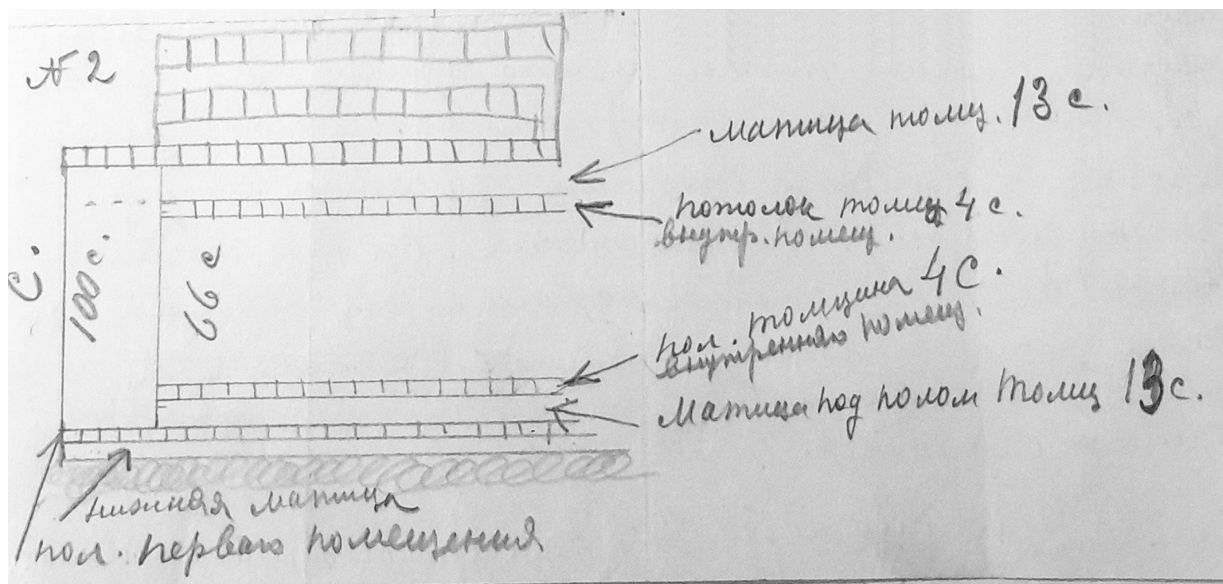 № 2
матица толщ. 13 с.
потолок толщ 4 с.
внутр. помещ.
С.
100 с.
66 с
пол. толщина 4 С.
внутренняго помещ.
Матица под полом толщ 13 с.
нижняя матица
пол. перваго помещения